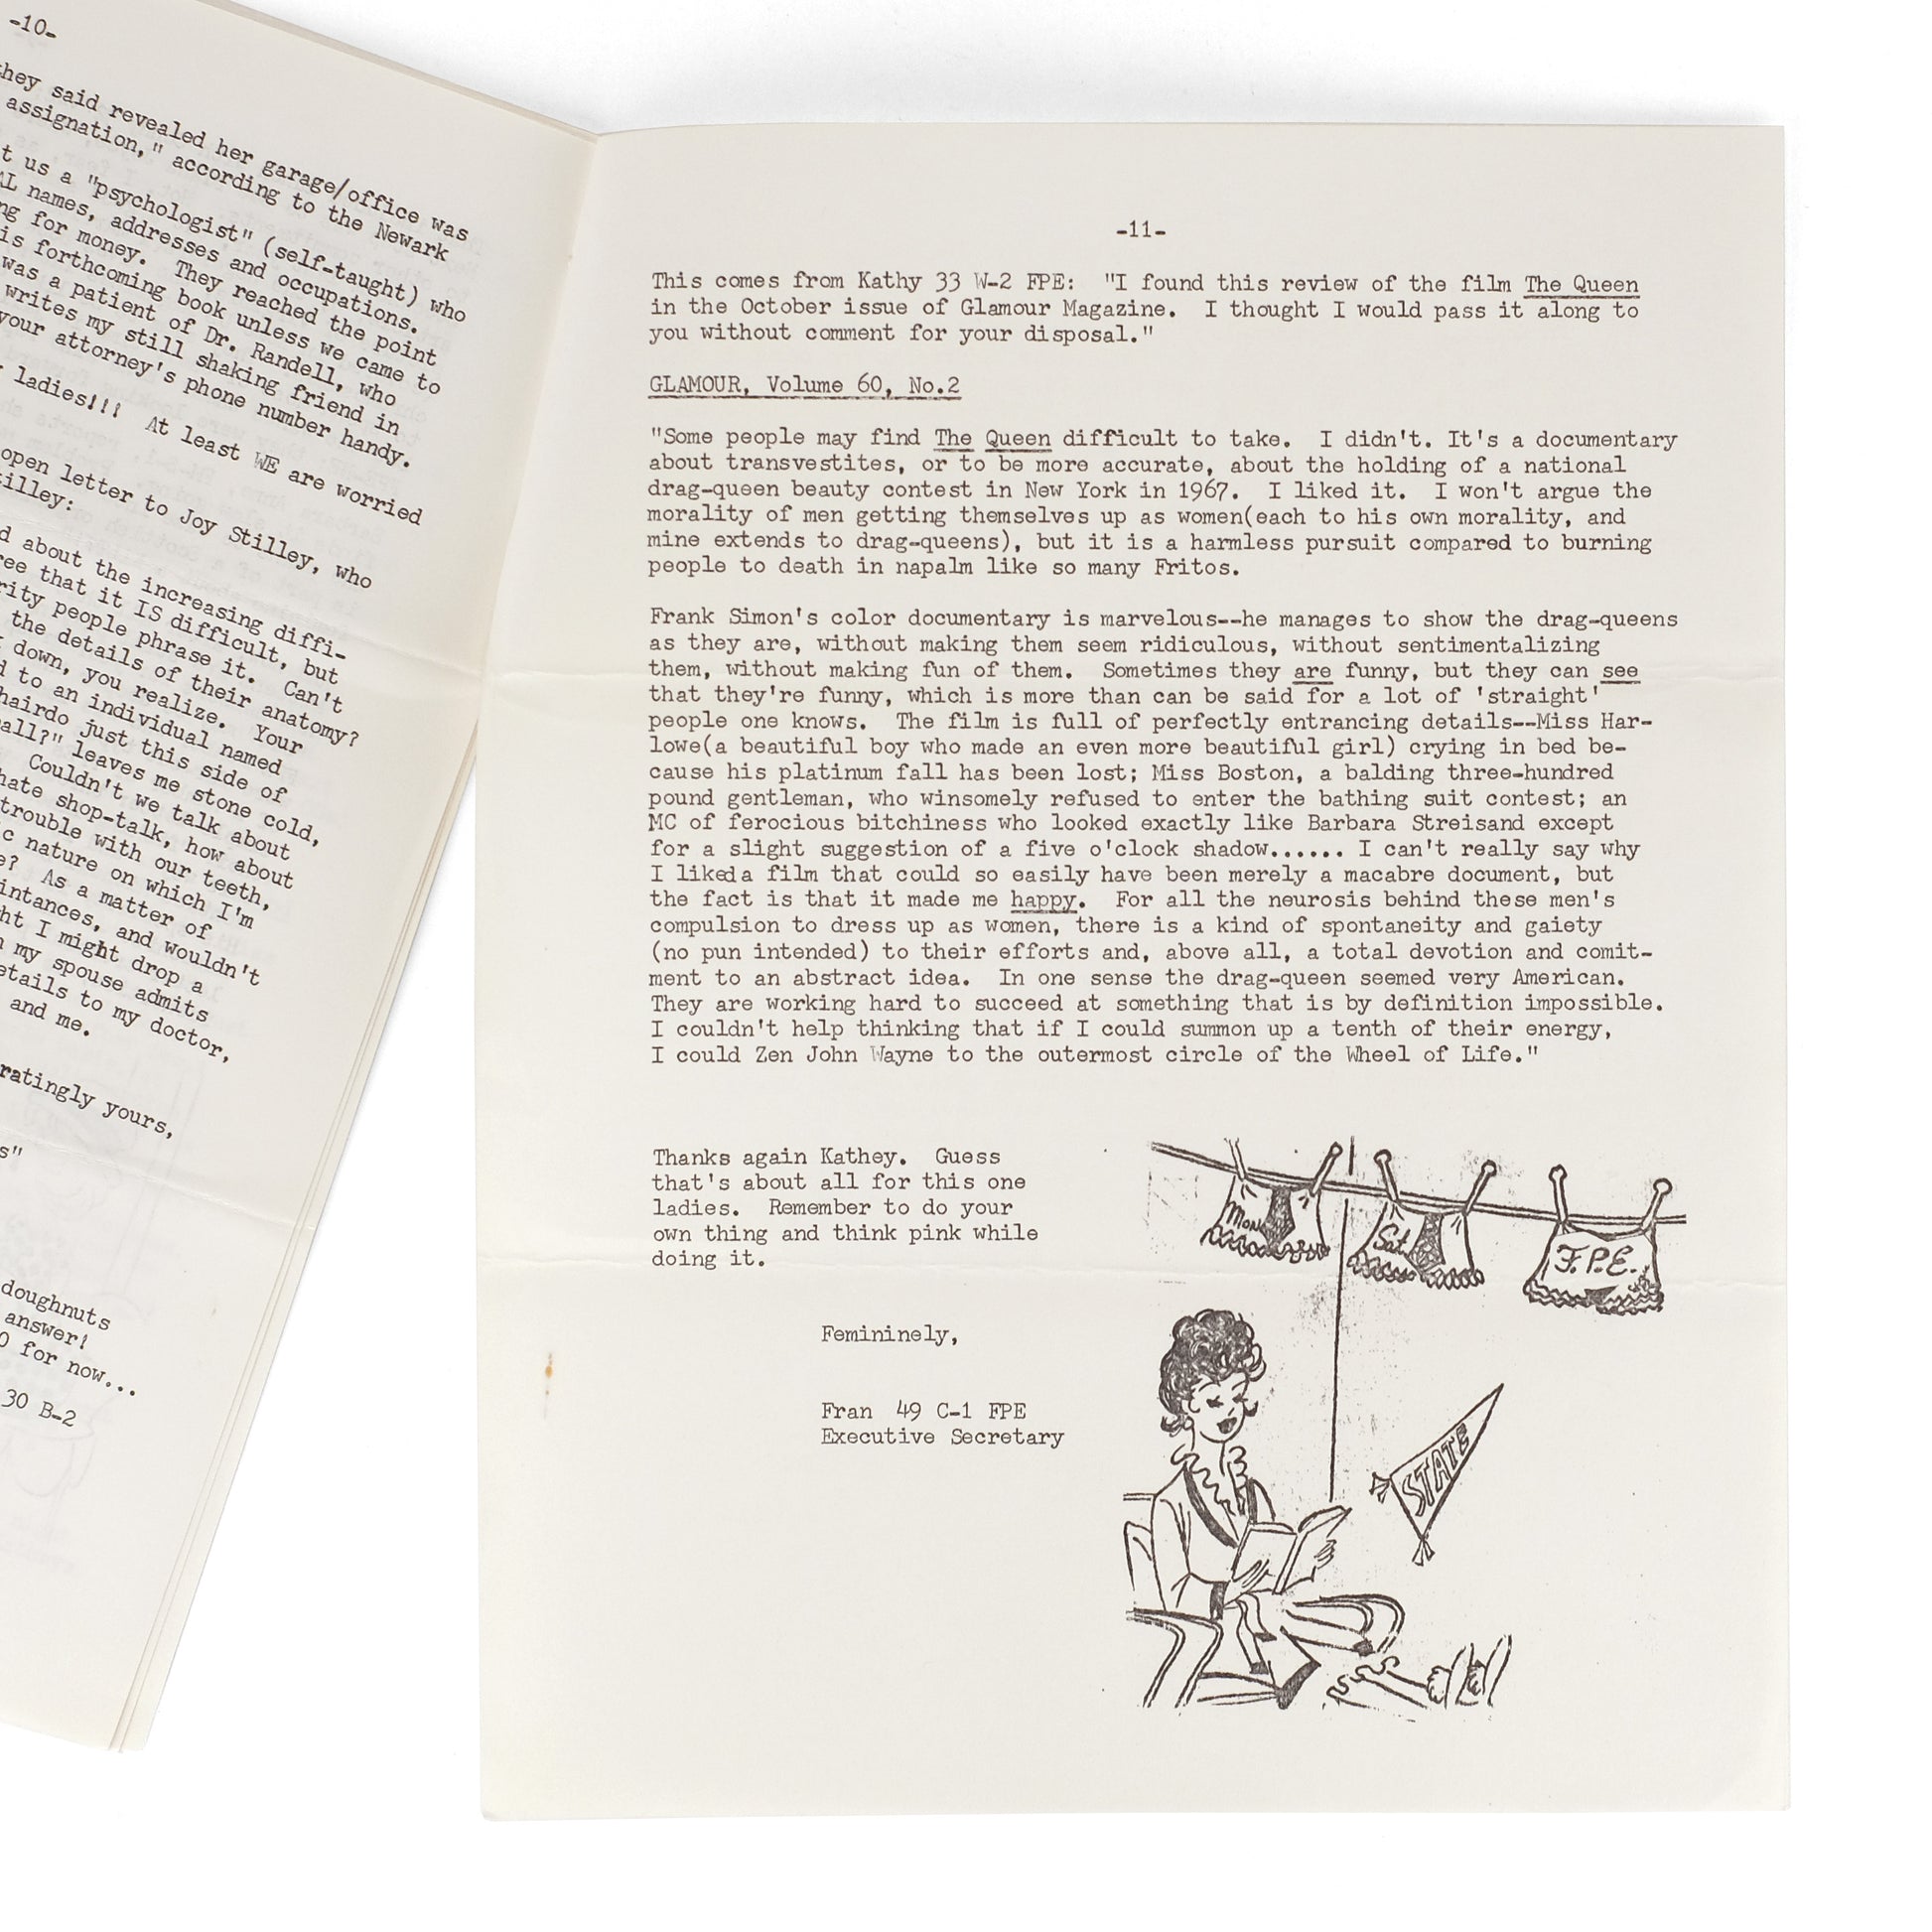 -10-
they said revealed her garage/office was
assignation," according to the Newark
t us a "psychologist" (self-taught) who
AL names, addresses and occupations.
ng for money.  They reached the point
is forthcoming book unless we came to
was a patient of Dr. Randell, who
writes my still shaking friend in
your attorney's phone number handy.
ladies!!!  At least WE are worried
open letter to Joy Stilley, who
tilley:
d about the increasing diffi-
ree that it IS difficult, but
rity people phrase it.  Can't
the details of their anatomy?
down, you realize.  Your
d to an individual named
hairdo just this side of
all?" leaves me stone cold,
Couldn't we talk about
hate shop-talk, how about
trouble with our teeth,
c nature on which I'm
e?  As a matter of
intances, and wouldn't
ht I might drop a
n my spouse admits
etails to my doctor,
and me.
ratingly yours,
s"
doughnuts
answer!
0 for now...
30 B-2
-11-
This comes from Kathy 33 W-2 FPE:  "I found this review of the film The Queen
in the October issue of Glamour Magazine.  I thought I would pass it along to
you without comment for your disposal."
GLAMOUR, Volume 60, No.2
"Some people may find The Queen difficult to take.  I didn't. It's a documentary
about transvestites, or to be more accurate, about the holding of a national
drag-queen beauty contest in New York in 1967.  I liked it.  I won't argue the
morality of men getting themselves up as women(each to his own morality, and
mine extends to drag-queens), but it is a harmless pursuit compared to burning
people to death in napalm like so many Fritos.
Frank Simon's color documentary is marvelous--he manages to show the drag-queens
as they are, without making them seem ridiculous, without sentimentalizing
them, without making fun of them.  Sometimes they are funny, but they can see
that they're funny, which is more than can be said for a lot of 'straight'
people one knows.  The film is full of perfectly entrancing details--Miss Har-
lowe(a beautiful boy who made an even more beautiful girl) crying in bed be-
cause his platinum fall has been lost; Miss Boston, a balding three-hundred
pound gentleman, who winsomely refused to enter the bathing suit contest; an
MC of ferocious bitchiness who looked exactly like Barbara Streisand except
for a slight suggestion of a five o'clock shadow...... I can't really say why
I liked a film that could so easily have been merely a macabre document, but
the fact is that it made me happy.  For all the neurosis behind these men's
compulsion to dress up as women, there is a kind of spontaneity and gaiety
(no pun intended) to their efforts and, above all, a total devotion and comit-
ment to an abstract idea.  In one sense the drag-queen seemed very American.
They are working hard to succeed at something that is by definition impossible.
I couldn't help thinking that if I could summon up a tenth of their energy,
I could Zen John Wayne to the outermost circle of the Wheel of Life."
Thanks again Kathey.  Guess
that's about all for this one
ladies.  Remember to do your
own thing and think pink while
doing it.
Femininely,
Fran  49 C-1 FPE
Executive Secretary
Mon
Sat.
F.P.E.
STATE